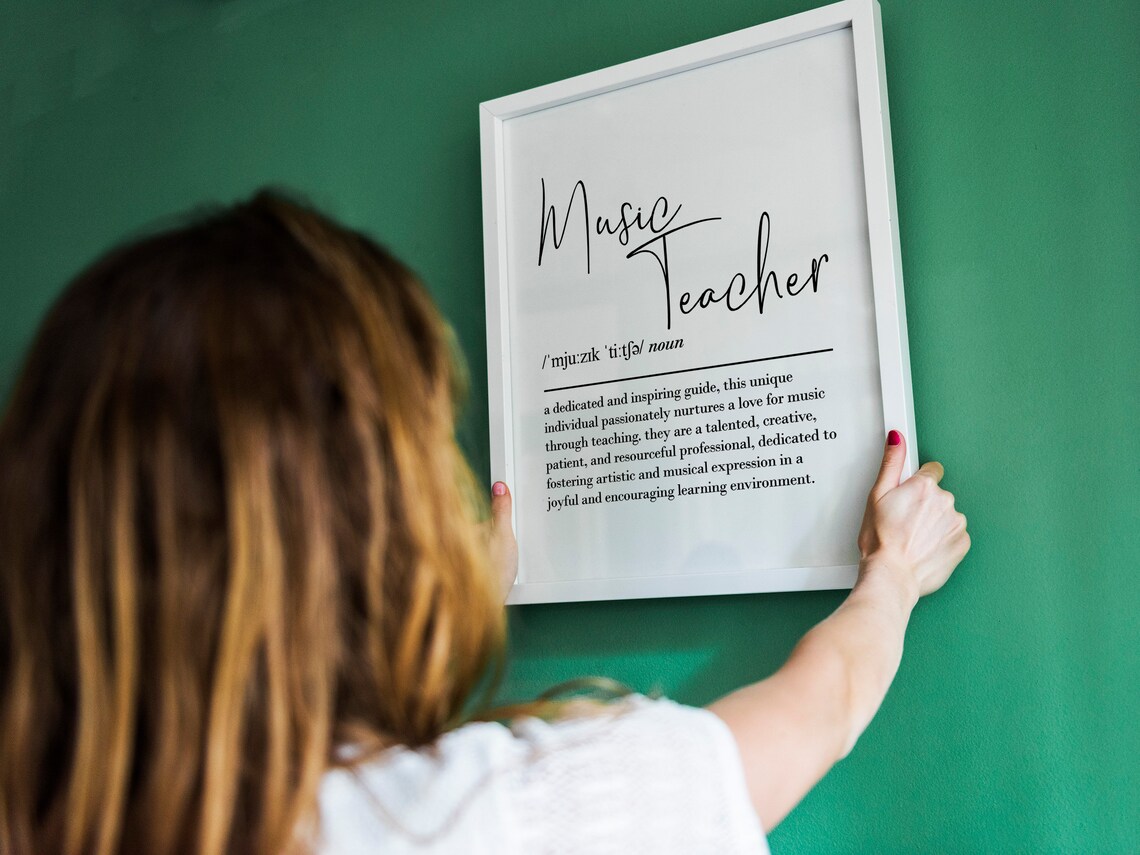 Music
Teacher
/ˈmjuːzɪk ˈtiːtʃə/ noun
a dedicated and inspiring guide, this unique
individual passionately nurtures a love for music
through teaching. they are a talented, creative,
patient, and resourceful professional, dedicated to
fostering artistic and musical expression in a
joyful and encouraging learning environment.